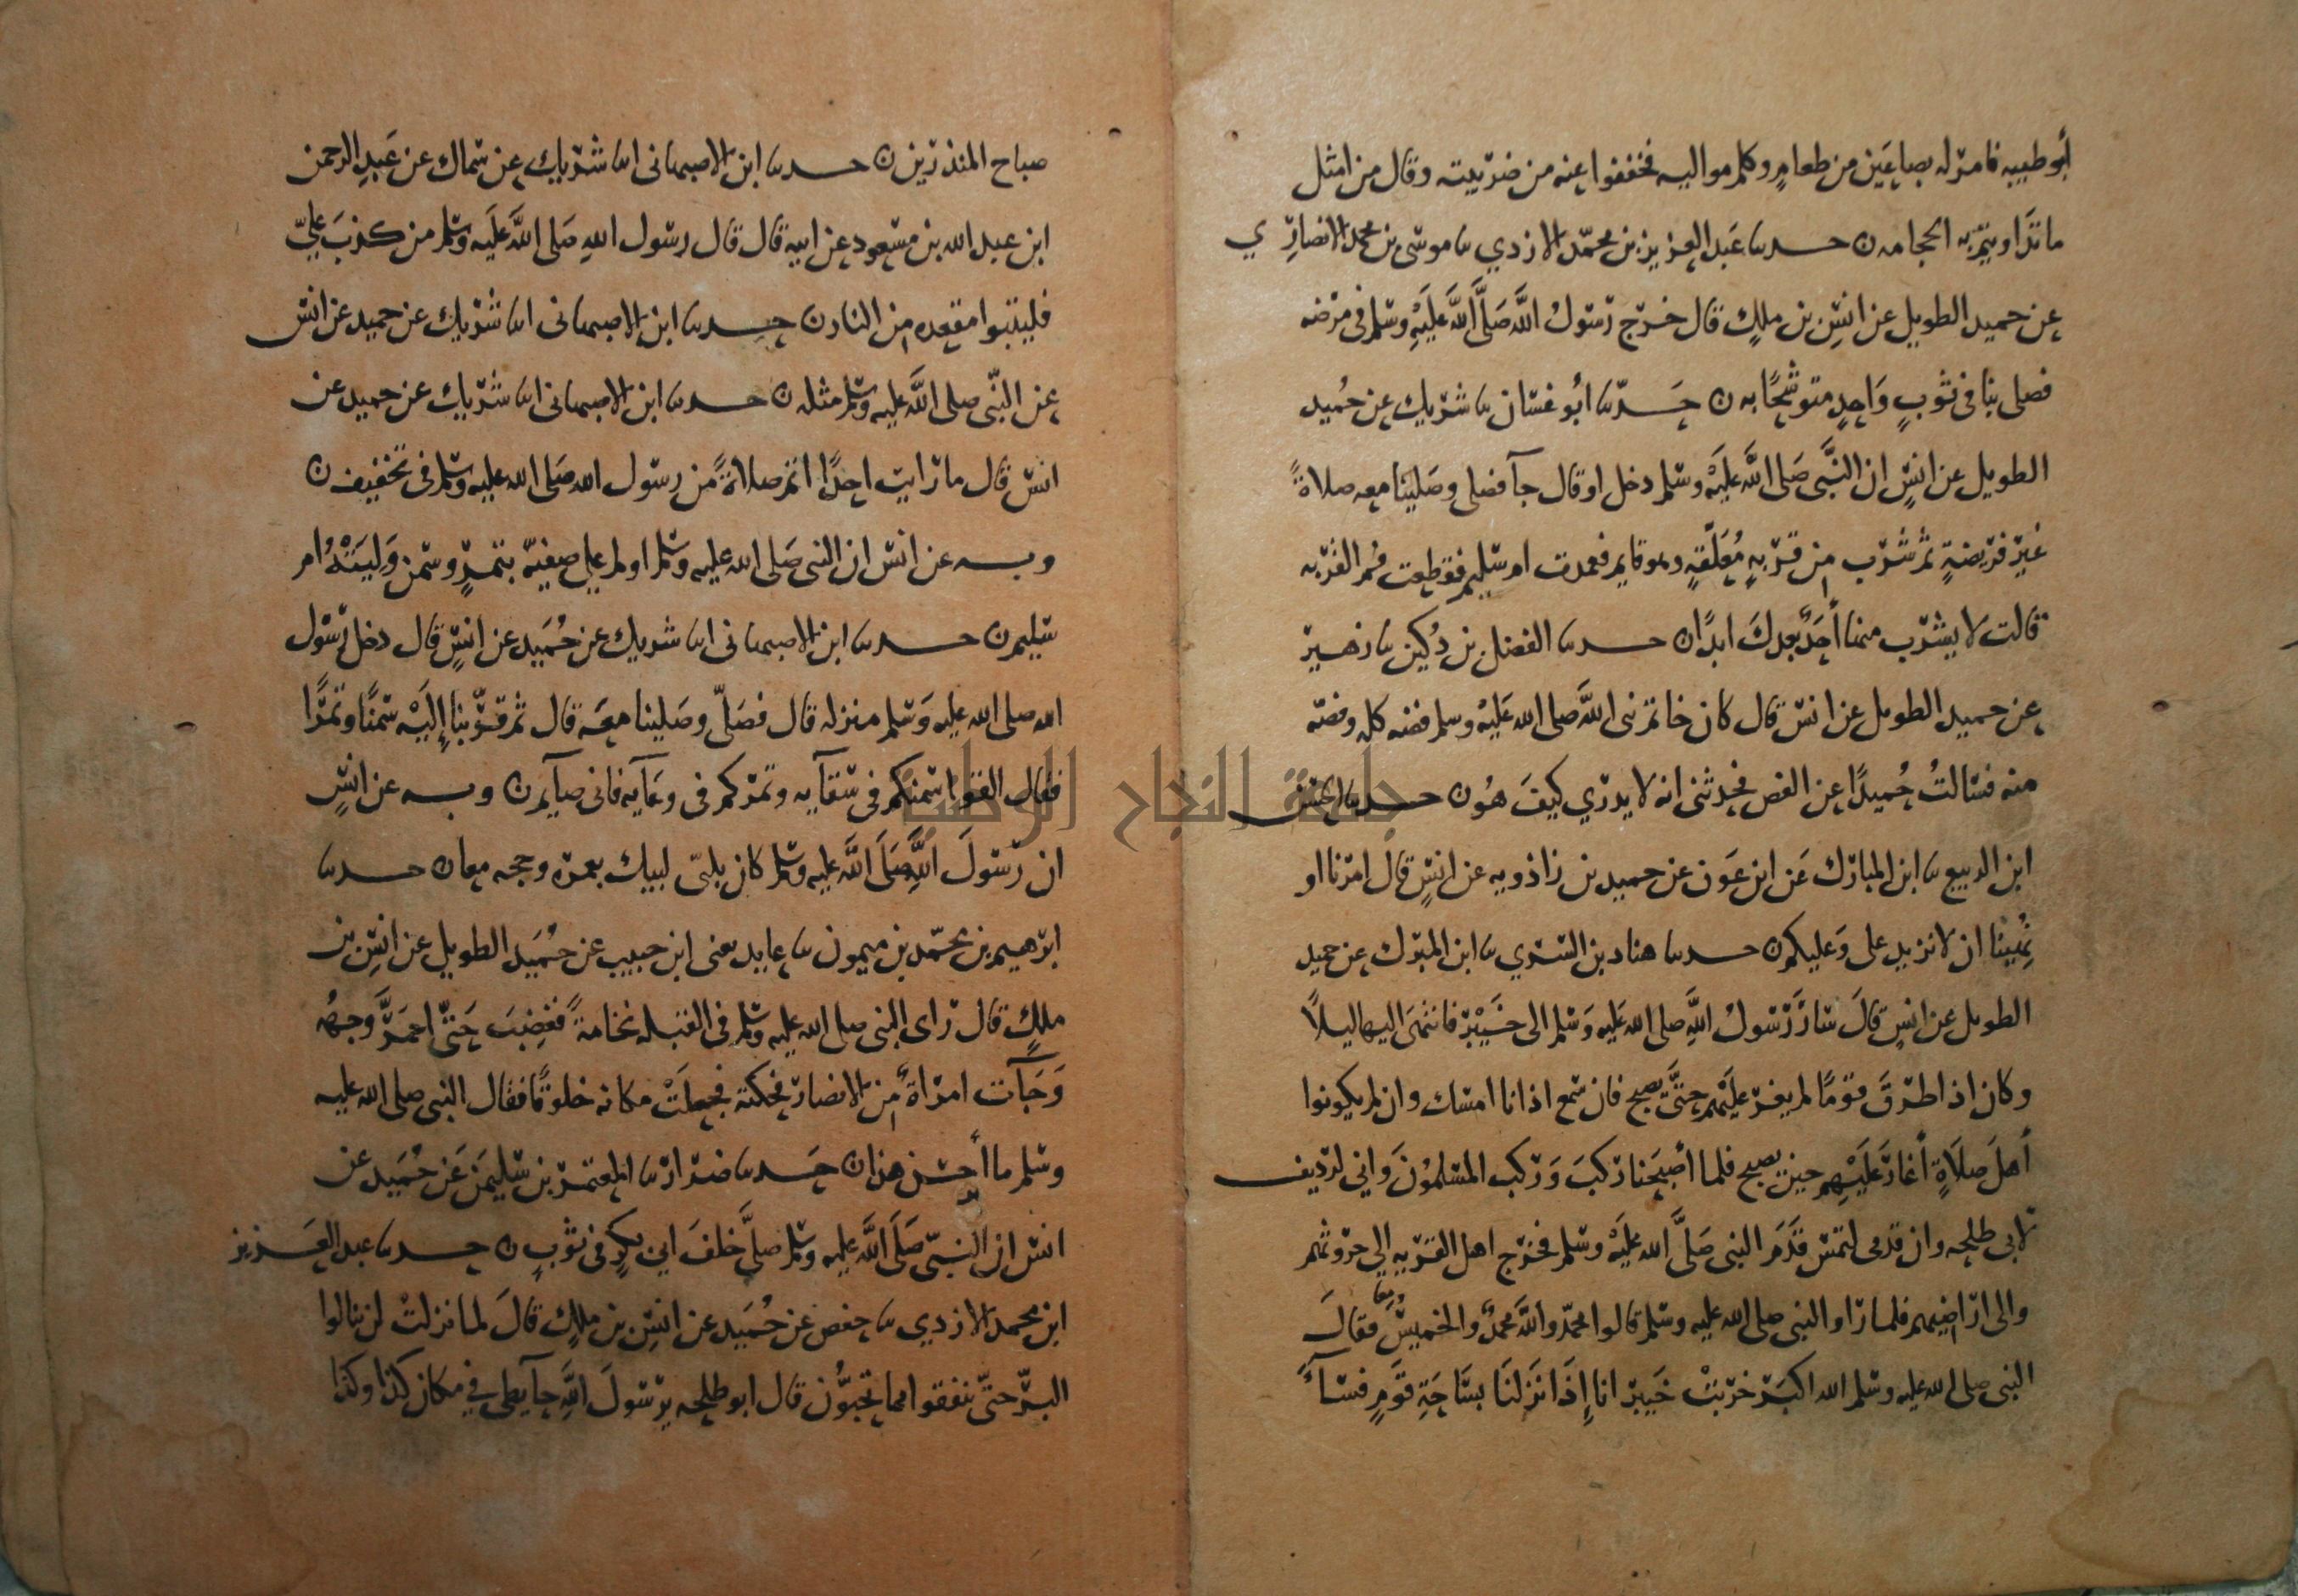 أبو طيبه فامر له بصاعين من طعامٍ وكلم مواليه فخففوا عنه من ضريبته وقال من امثل
ما تداويتم به الحجامه ن حدثنا عبد العزيز بن محمد الازدي نا موسى بن محمد الانصاري
عن حميد الطويل عن انس بن ملك قال خرج رسول الله صلى الله عليه وسلم في مرضه
فصلى بنا في ثوبٍ واحدٍ متوشحًا به ن حدثنا أبو غسان نا شريك عن حُميد
الطويل عن انسٍ ان النبي صلى الله عليه وسلم دخل او قال جآ فصلى وصلينا معه صلاةً
غير فريضةٍ ثم شرب من قربهٍ مُعلقهٍ وهو قايم فعمدت ام سليم فقطعت فم القربه
قالت لا يشرب منها أحدٌ بعدك ابدًا ن حدثنا الفضل بن دُكين نا زهير
عن حميد الطويل عن انس قال كان خاتم نبي الله صلى الله عليه وسلم فضه كله وفصه
منه فسالتُ حُميدًا عن الفص فحدثني انه لا يدري كيف هُو ن حدثنا الحسن
ابن الربيع نا ابن المبارك عن ابن عون عن حميد بن زاذويه عن انسٍ قال امرنا او
نُهينا ان لا نزيد على وعليكم ن حدثنا هناد بن السري نا ابن المبرك عن حميد
الطويل عن انس قال سار رسول الله صلى الله عليه وسلم الى خيبر فانتهى اليها ليلاً
وكان اذا طرق قومًا لم يغر عليهم حتى يصبح فان سمع اذانا امسك وان لم يكونوا
أهل صلاةٍ أغار عليهم حين يصبح فلما أصبحنا ركب وركب المسلمون واني لرديف
لابي طلحه وان قدمى لتمس قدم النبي صلى الله عليه وسلم فخرج اهل القريه الي حروثهم
والى اراضيهم فلما راو النبي صلى الله عليه وسلم قالوا محمد والله محمدٌ والخميس معا فقال
النبي صلى الله عليه وسلم الله اكبر خربتْ خيبر انا إذا نزلنا بساحة قومٍ فسآءَ
صباح المنذرين ن حدثنا ابن الاصبهاني انا شريك عن سماك عن عبد الرحمن
ابن عبد الله بن مسعود عن ابيه قال قال رسول الله صلى الله عليه وسلم من كذب عليّ
فليتبوا مقعده من النار ن حدثنا ابن الاصبهاني انا شريك عن حميد عن انس
عن النبي صلى الله عليه وسلم مثله ن حدثنا ابن الاصبهاني انا شريك عن حميد عن
انس قال ما رايت احدًا اتم صلاةً من رسول الله صلى الله عليه وسلم في تخفيف ن
وبه عن انس ان النبي صلى الله عليه وسلم اولم على صفيه بتمرٍ وسمن وليته أم
سليم ن حدثنا ابن الاصبهاني انا شريك عن حُميد عن انسٍ قال دخل رسول
الله صلى الله عليه وسلم منزله قال فصلى وصلينا معه قال ثم قربنا إليه سمنًا وتمرًا
فقال القوا سمنكم في سقآيه وتمركم في وعآيه فاني صآيم ن وبه عن انسٍ
ان رسول الله صلى الله عليه وسلم كان يلبي لبيك بعمره وحجه معا ن حدثنا
ابرهيم بن محمد بن ميمون نا عايد يعني ابن حبيب عن حُميد الطويل عن انس بن
ملكٍ قال راى النبي صلى الله عليه وسلم في القبله نخامةً فغضب حتى احمرّ وجههُ
وجآت امراةٌ من الانصار فحكته فجعلتْ مكانه خلوقًا فقال النبي صلى الله عليه
وسلم ما أحسن هذا ن حدثنا ضرار نا المعتمر بن سليمن عن حُميد عن
انس ان النبيّ صلى الله عليه وسلم صلى خلف ابي بكرٍ في ثوبٍ ن حدثنا عبد العزيز
ابن محمد الازدي نا حفص عن حُميد عن انس بن ملكٍ قال لما نزلتْ لن تنالوا
البر حتى تنفقوا مما تحبون قال ابو طلحه يرسول الله حآيطي في مكان كذا وكذا
جامعة النجاح الوطنية